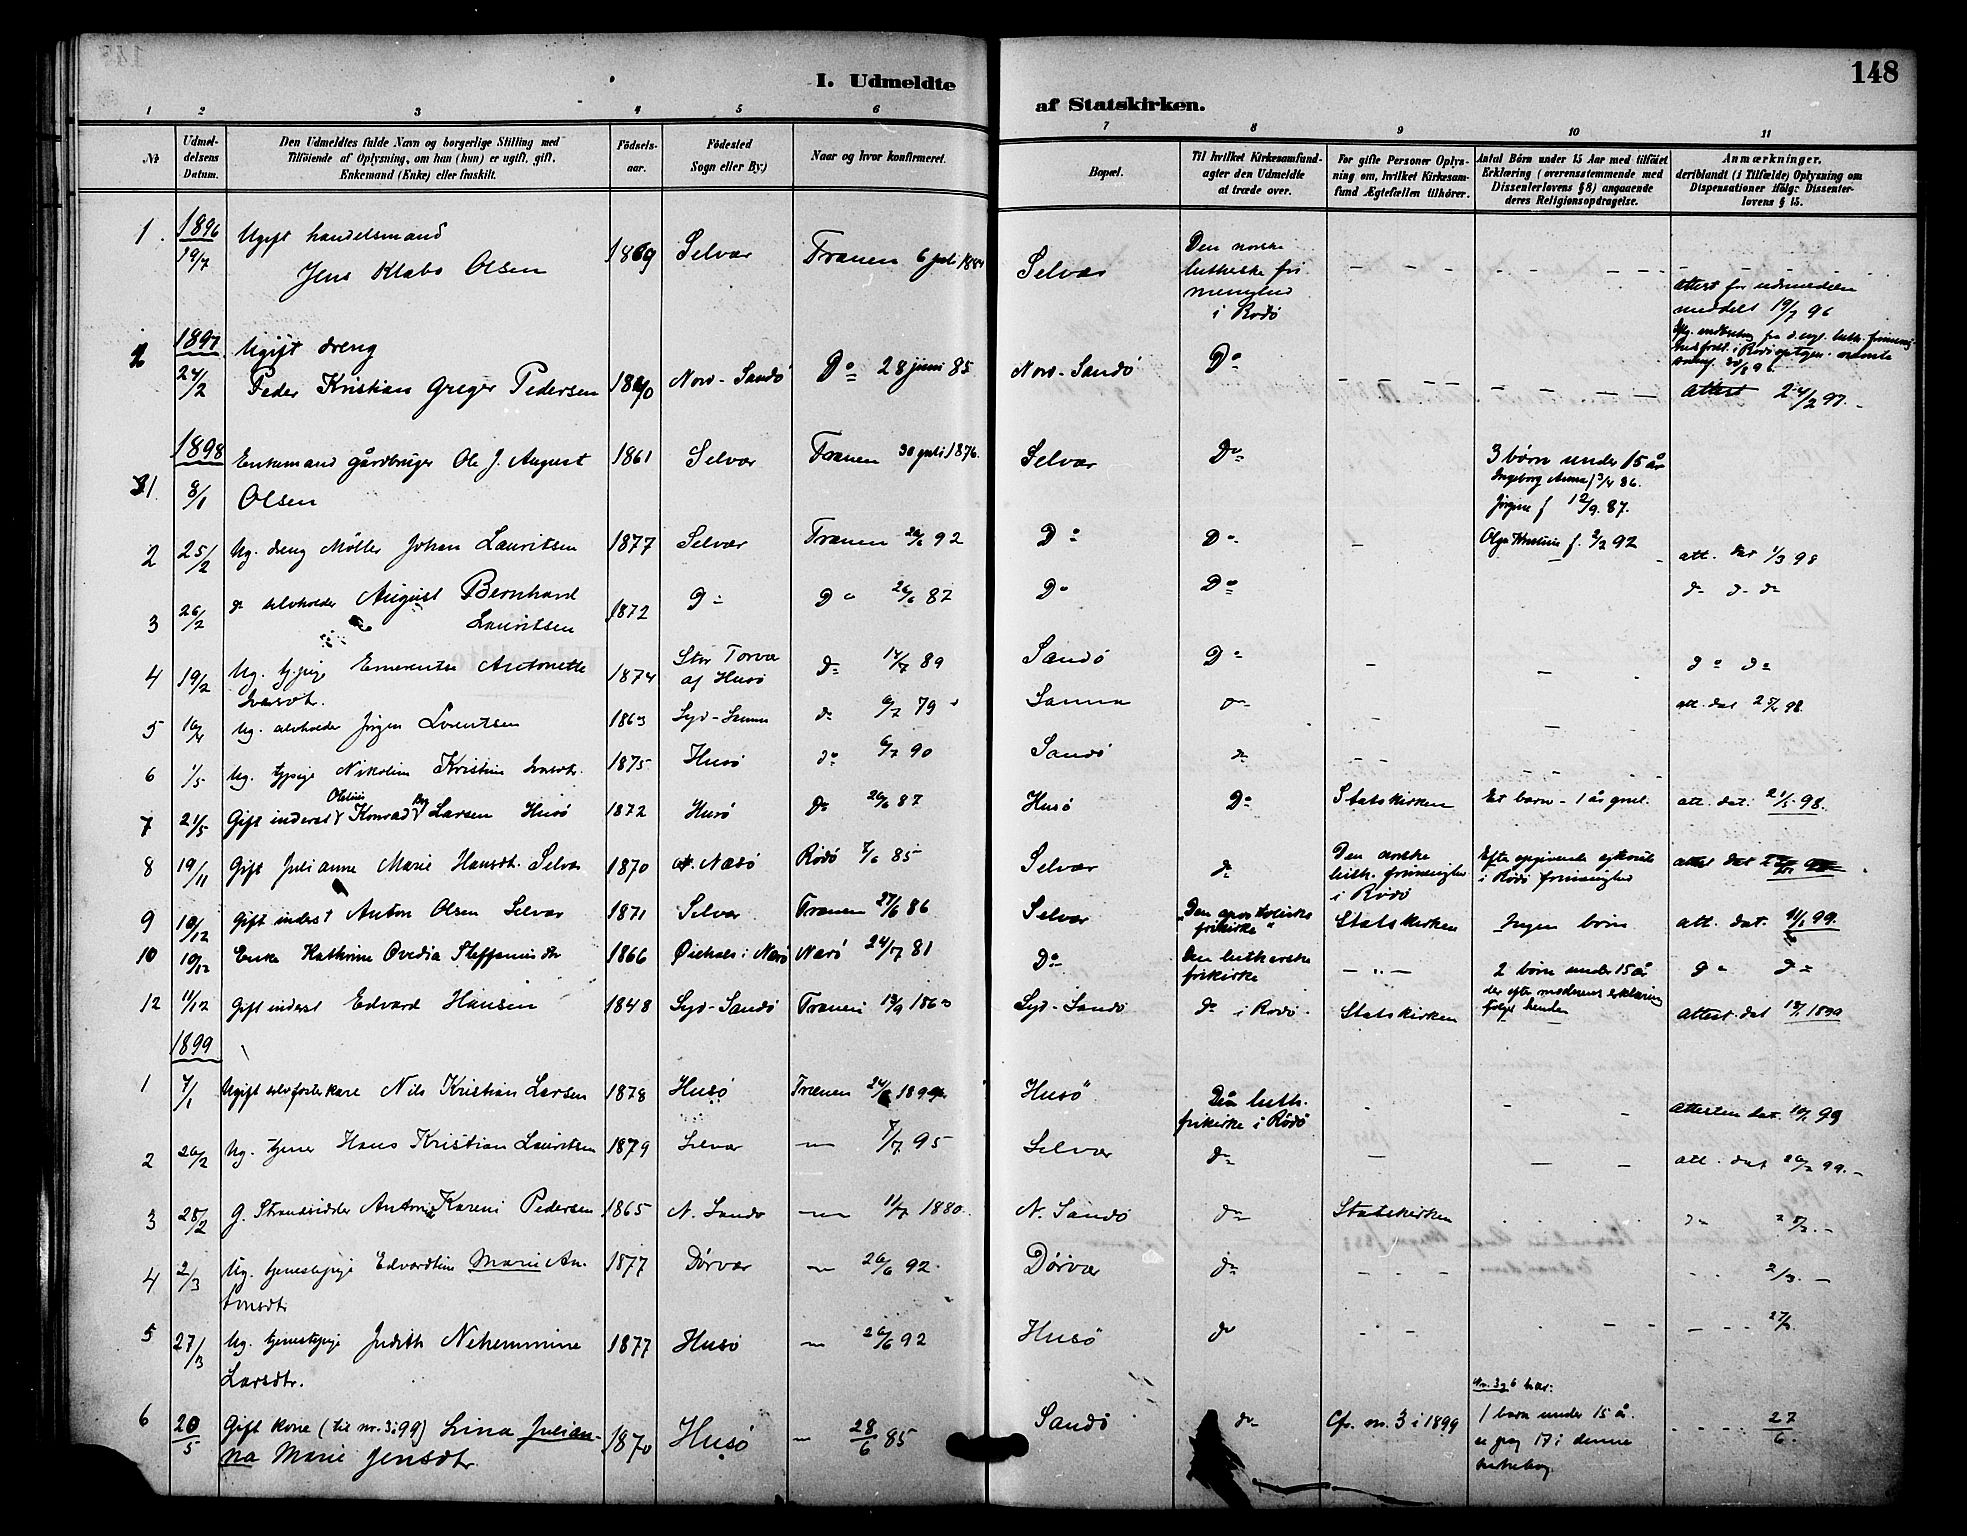 148
I. Udmeldte af Statskirken.
1 2 3 4 5 6 7 8 9 10 11
Nr.
Udmeldelsens Datum.
Den Udmeldtes fulde Navn og borgerlige Stilling med
Tilføiende af Oplysning, om han (hun) er ugift, gift,
Enkemand (Enke) eller fraskilt.
Fødselsaar.
Fødested
Sogn eller By.)
Naar og hvor konfirmeret.
Bopæl.
Til hvilket Kirkesamfund agter den Udmeldte at træde over.
For gifte Personer Oplysning om, hvilket Kirkesamfund Ægtefællen tilhører.
Antal Børn under 15 Aar med tilføiet
Erklæring (overensstemmende med
Dissenterlovens § 8) angaaende
deres Religionsopdragelse.
Anmærkninger,
deriblandt (i Tilfælde) Oplysning om
Dispensationer ifølge Dissenterlovens § 15.
1896
1. 19/7 Ugift handelsmand Jens Klabo Olsen 1869 Selvær Trænen 6 juli 1884 Selvær Den norske lutherske frimenighed i Rødø Attest for udmeldelse meddelt 19/7 96
1897
2 24/2 Ugift dreng Peder Kristian Greger Pedersen 1870 Nord-Sandø Do 28 juni 85 Nord-Sandø Do Attest 24/2 97.
1898
1. 8/1 Enkemand gårdbruger Ole J. August Olsen 1861 Selvær Trænen 30 juli 1876. Selvær Do 3 børn under 15 år Ingeborg Anna f 3/4 86. Jørgine f 12/9. 87. Olga Kristine f. 2/2 92
2 25/2 Ug. dreng Møller Johan Lauritsen 1877 Selvær Trænen 26/6 92 Do Do att. dat 1/3 98
3 26/2 do selvholder August Bernhard Lauritsen 1872 Do Do 26/6 87 Do Do do do do
4 19/2 Ug. tjpige Emerentse Antonette Ivarsdt. 1874 Stor Torvær af Husø do 14/7 89 Sandø Do do do
5 16/4 Ug. selvholder Jørgen Lorentsen 1863 Syd-Sanna do 6/7 79 Sanna do att. dat
6 1/5 Ug. tjpige Nikoline Kristine Ivarsdt. 1875 Husø do 6/7 90 Sandø do
7 21/5 Gift inderst Konrad Larsen Husø 1872 Husø Do 26/6 87 Husø Do Statskirken Et barn - 1 år gml. att. dat. 21/5 98.
8 19/11 Gift Julianne Marie Hansdt. Selvær 1870 Næsø Rödö 7/6 85 Selvær do Den norske luth. frimenighed i Rödö Efter opgivende i Rödö frimenighed attest dat
9 10/12 Gift inderst Anton Olsen Selvær 1871 Selvær Trænen 27/6 86 Selvær "Den apostoliske frikirke" Statskirken Ingen børn att. dat. 11/1 99.
10 10/12 Enke Kathrine Ovedia Steffensdtr 1866 i Nærø Nærö 24/7 81 Do Den lutherske frikirke 2 børn under 15 år der efter moderens erklæring følger hende do do
12 11/12 Gift inderst Edvard Hansen 1848 Syd-Sandö Trænen Syd-Sandö do i Rödö. Statskirken Attest dat 1899
1899
1 7/1 Ugift Nils Kristian Larsen 1878 Husø Trænen Husø Den luth. frikirke i Rödö Attesten dat. 10/1 99
2 26/2 Ug. tjener Hans Kristian Lauritsen 1879 Selvær — 7/7 95 Selvær do att. dat 26/2 99.
3 28/2 g. Strandsidder Anton Kareni Pedersen 1865 N. Sandö — 11/7 1880. N. Sandö do Statskirken do
4 2/3 Ug. tjenestepige Edvardine Marie Antonsdt. 1877 Dørvær — 26/6 92. Dørvær do 2/3.
5 27/3 Ug. tjenestepige Judith Nehemmine Larsdtr. 1877 Husö — 26/6 92 Husö do 27/3
6 20/5 Gift kone (til nr. 3 i 99) Lina Julianna Marie Jensdtr. 1870 Husö — 28/6 85 Sandö do Cfr. nr. 3 i 1899 Nr. 3 og 6 har: 1 barn under 15 år. se pag 17 i denne kirkebog 27/6.